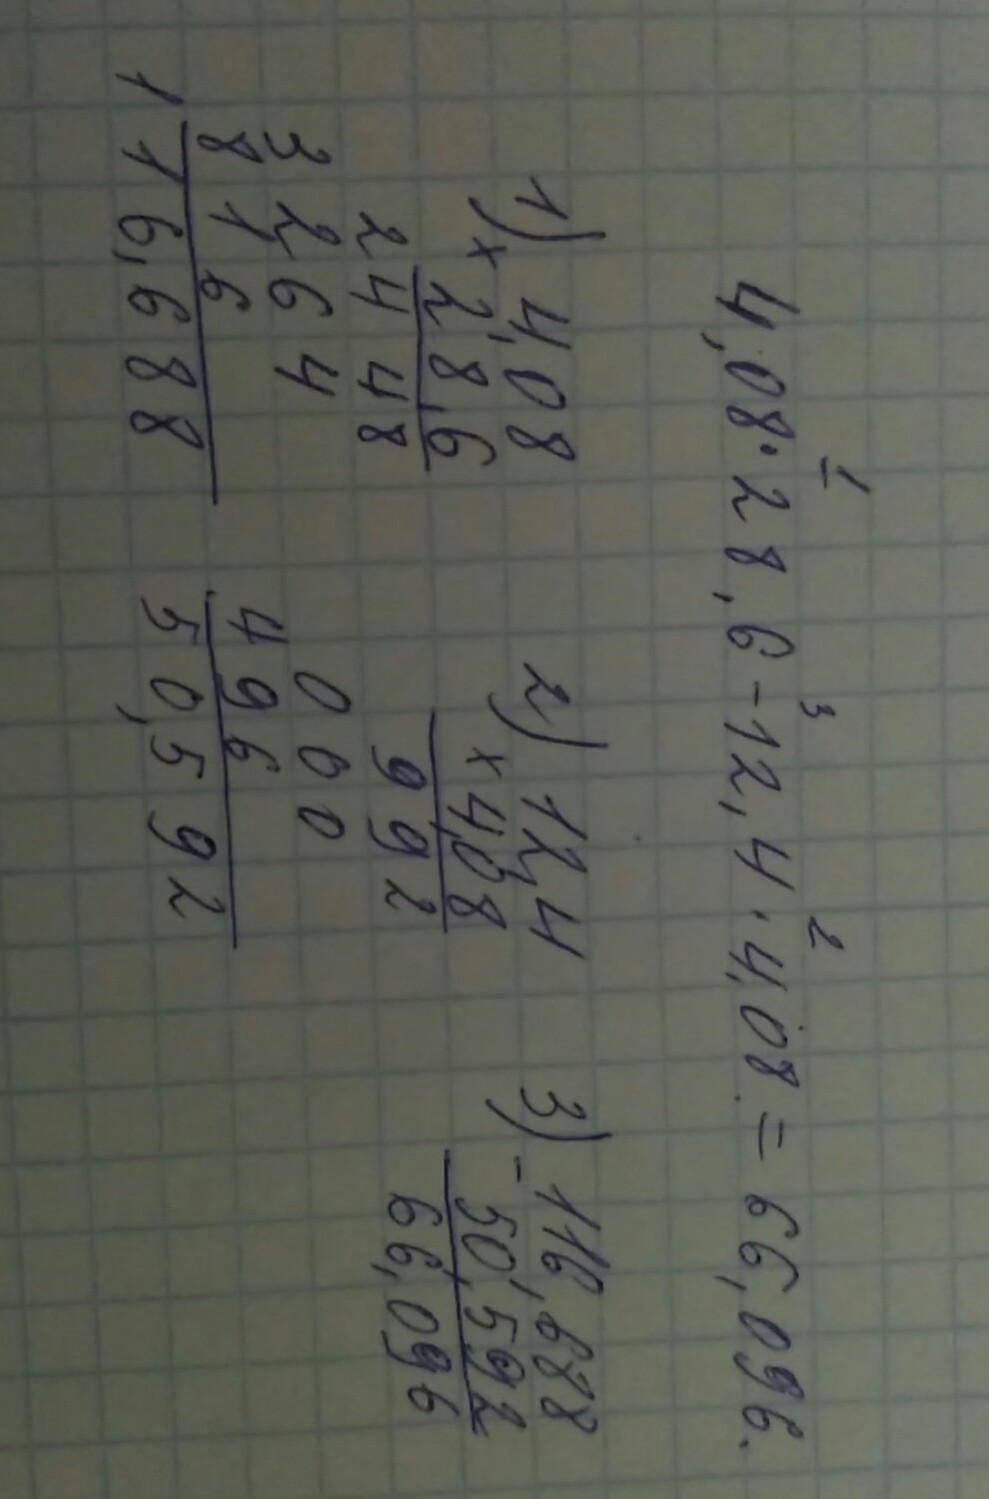 1 3 2
4,08 · 28,6 - 12,4 · 4,08 = 66,096.
1) 4,08
× 28,6
2448
3264
816
116,688
2) 12,4
× 4,08
992
000
496
50,592
3) - 116,688
50,592
66,096